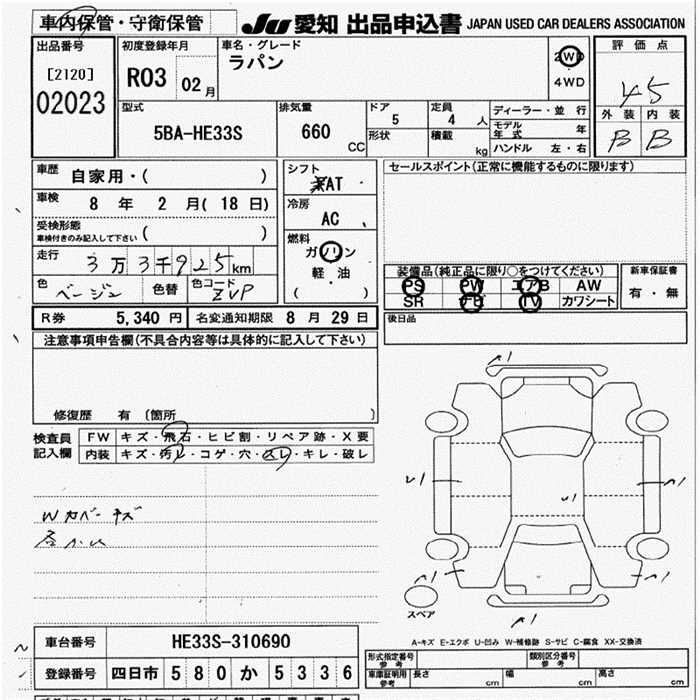 車内保管・守衛保管
JU 愛知 出品申込書 JAPAN USED CAR DEALERS ASSOCIATION
出品番号
[2120]
02023
初度登録年月
R03 02月
車名・グレード
ラパン
2WD
4WD
評価点
4.5
外装 内装
B B
型式
5BA-HE33S
排気量
660 CC
ドア
5
形状
定員
4 人
積載 kg
ディーラー・並行
モデル年式 年
ハンドル 左・右
車歴
自家用・( )
車検
8 年 2 月( 18 日)
受検形態
車検付きのみ記入して下さい ( )
走行
3万3千925km
色
ベージュ
色替
色コード
ZVP
シフト
FAT
冷房
AC
燃料
ガソリン
軽・油
( )
セールスポイント(正常に機能するものに限ります)
装備品(純正品に限り○をつけてください)
PS PW エアB AW
SR ナビ TV カワシート
新車保証書
有・無
後日品
R券 5,340 円 名変通知期限 8 月 29 日
注意事項申告欄(不具合内容等は具体的に記入して下さい)
修復歴 有 〔箇所 〕
検査員記入欄
FW キズ・飛石・ヒビ割・リペア跡・X要
内装 キズ・汚レ・コゲ・穴・スレ・キレ・破レ
Wカバーキズ
スペア
A-キズ E-エクボ U-凹み W-補修跡 S-サビ C-腐食 XX-交換済
車台番号 HE33S-310690
登録番号 四日市 580 か 5336
形式指定番号 参考
類別区分番号 参考
車庫証明用 参考 長さ 幅 高さ